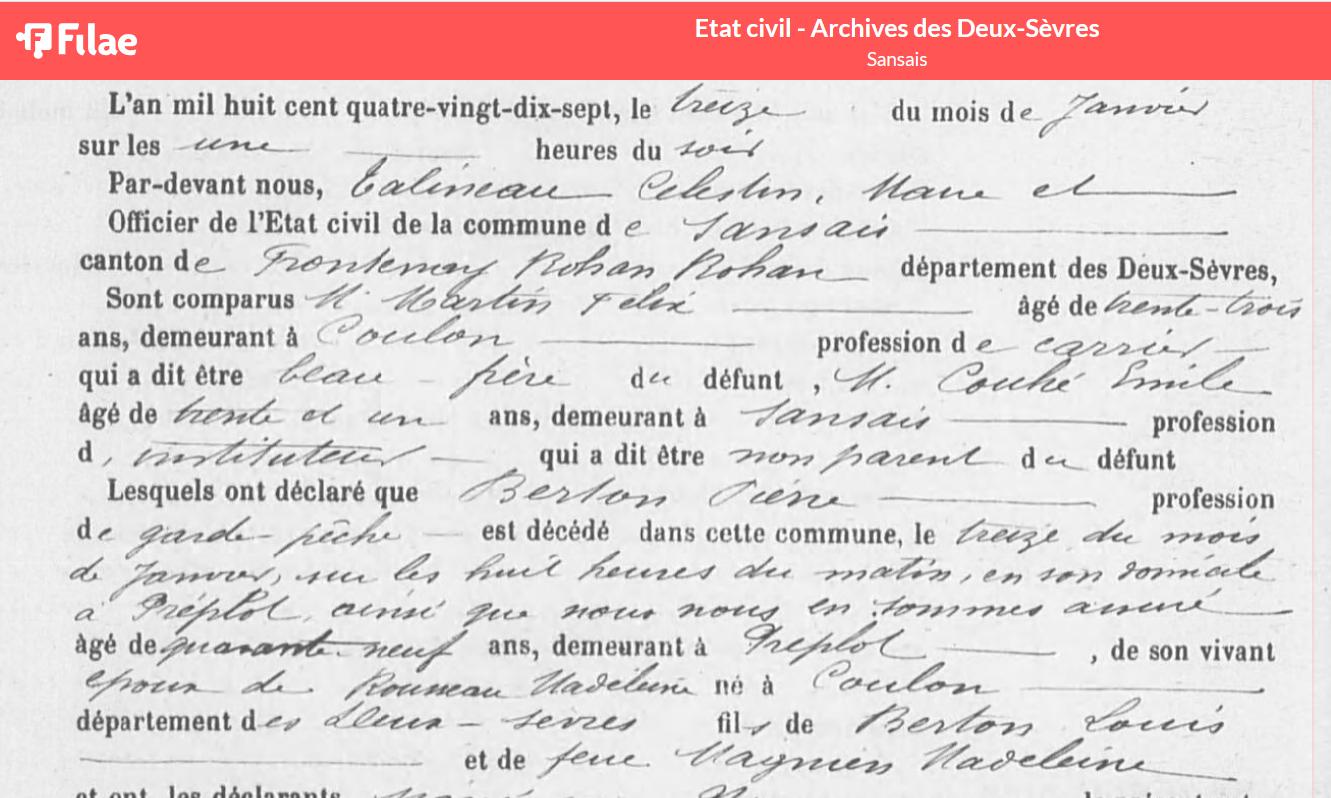 Filae
Etat civil - Archives des Deux-Sèvres
Sansais
L'an mil huit cent quatre-vingt-dix-sept, le treize du mois de Janvier
sur les une heures du soir
Par-devant nous, Talineau Célestin, Maire et
Officier de l'Etat civil de la commune de Sansais
canton de Frontenay Rohan Rohan département des Deux-Sèvres,
Sont comparus M. Martin Felix âgé de trente-trois
ans, demeurant à Coulon profession de carrier
qui a dit être beau-frère du défunt, M. Couhé Emile
âgé de trente et un ans, demeurant à Sansais profession
d'instituteur qui a dit être non parent du défunt
Lesquels ont déclaré que Berton Pierre profession
de garde-pêche est décédé dans cette commune, le treize du mois
de Janvier, sur les huit heures du matin, en son domicile
à Préplot, ainsi que nous nous en sommes assuré
âgé de quarante-neuf ans, demeurant à Préplot, de son vivant
époux de Rousseau Madeleine né à Coulon
département des Deux-Sèvres fils de Berton Louis
et de feue Magnien Madeleine
et ont, les déclarants